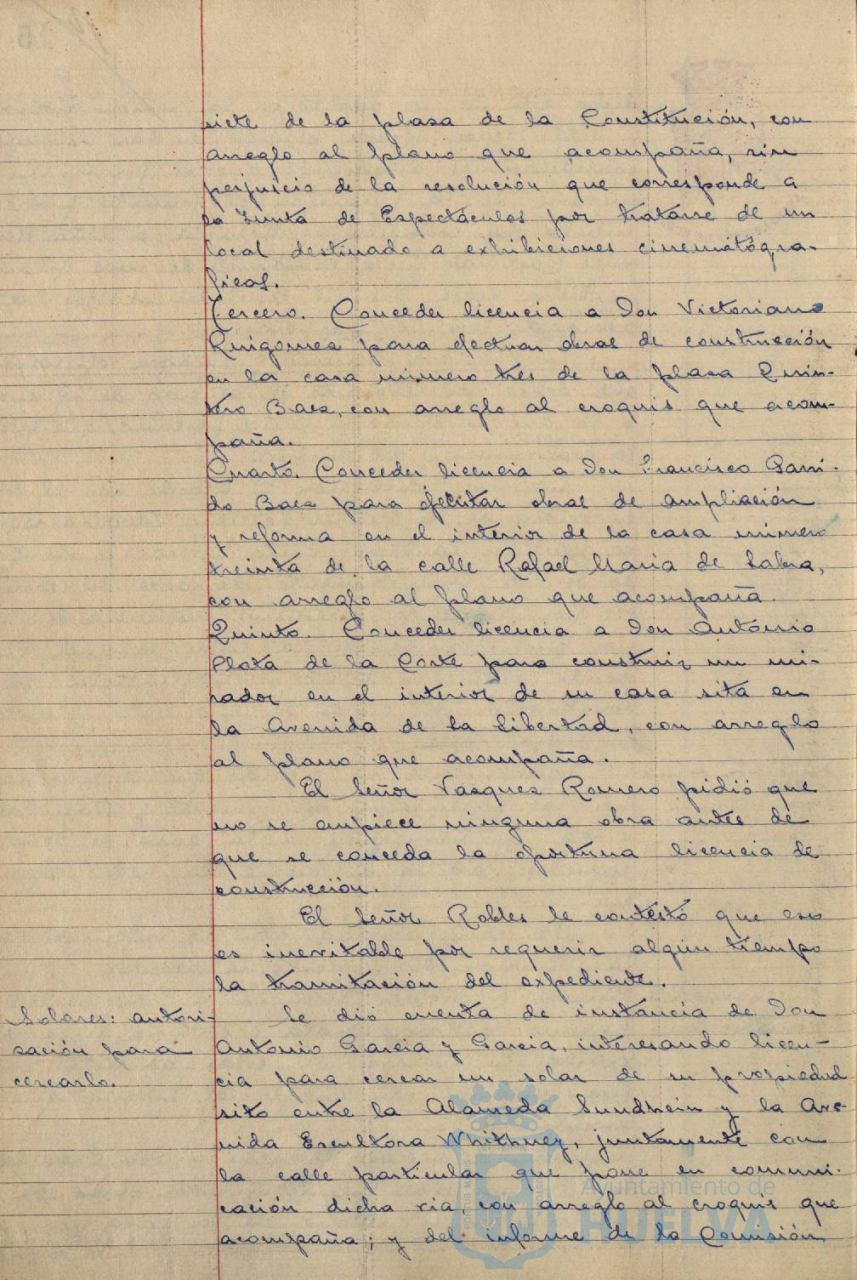 siete de la plasa de la Constitución, con
arreglo al plano que acompaña, sin
perjuicio de la resolución que corresponde a
la Junta de Espectáculos por tratarse de un
local destinado a exhibiciones cinematógra-
ficas.
Tercero. Conceder licencia a Don Victoriano
Ruigomez para efectuar obras de construcción
en la casa número tres de la plasa Quin-
tero Baez, con arreglo al croquis que acom-
paña.
Cuarto. Conceder licencia a Don Francisco Garri-
do Baez para efectuar obras de ampliación
y reforma en el interior de la casa número
treinta de la calle Rafael Maria de Labra,
con arreglo al plano que acompaña.
Quinto. Conceder licencia a Don Antonio
Plata de la Corte para construir un mi-
rador en el interior de su casa sita en
la Avenida de la Libertad, con arreglo
al plano que acompaña.
El Señor Vasques Romero pidió que
no se empiece ninguna obra antes de
que se conceda la oportuna licencia de
construcción.
El Señor Robles le contestó que eso
es inevitable por requerir algún tiempo
la tramitación del expediente.
Solares: autori-
sación para
cercarlo.
Se dió cuenta de instancia de Don
Antonio Garcia y Garcia, interesando licen-
cia para cercar un solar de su propiedad
sito entre la Alameda Sundhein y la Ave-
nida Escultora Whithney, juntamente con
la calle particular que pone en comuni-
cación dicha via, con arreglo al croquis que
acompaña; y del informe de la Comisión
Ayuntamiento de
HUELVA